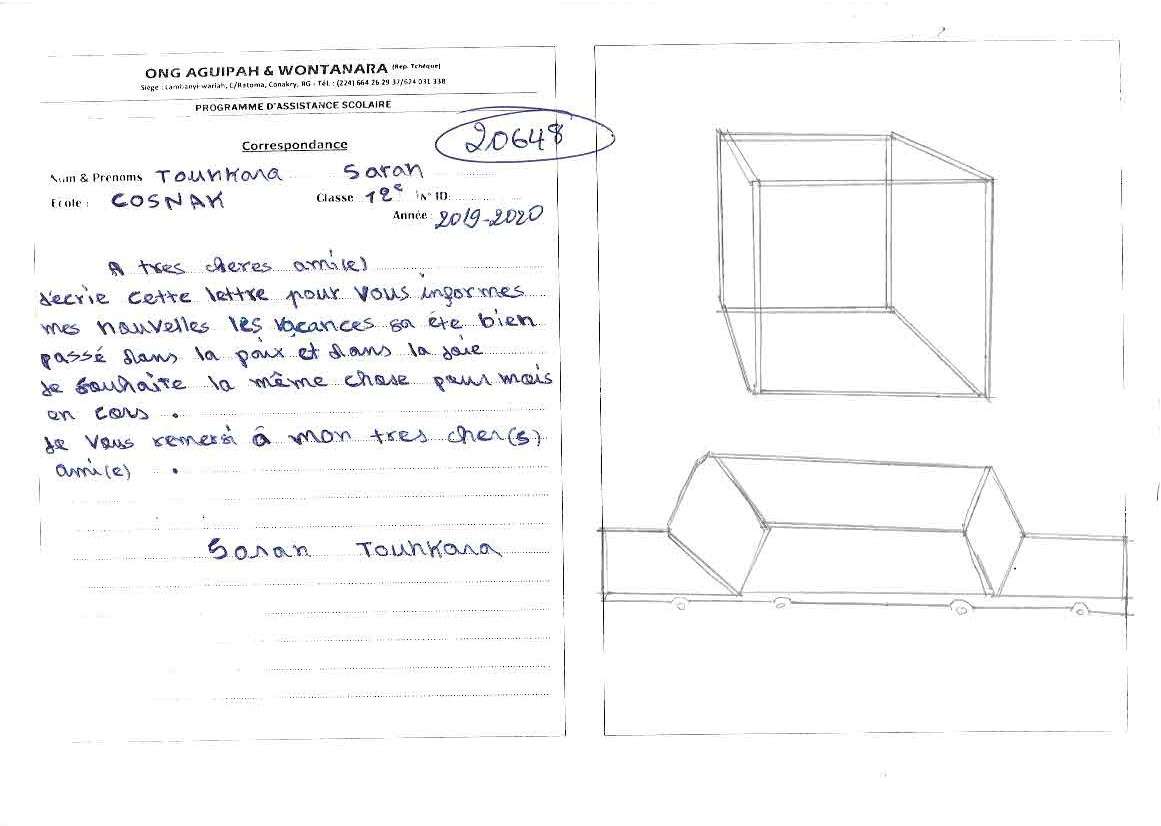 ONG AGUIPAH & WONTANARA (Rep. Tchèque)
Siège : Lambanyi-wariah, C/Ratoma, Conakry, RG - Tél. : (224) 664 26 29 37/624 031 338
PROGRAMME D'ASSISTANCE SCOLAIRE
20648
Correspondance
Nom & Prénoms Tounkara Saran
Ecole : COSNAK Classe 12e N° ID:
Année 2019-2020
A tres cheres ami(e)
J'ecrie cette lettre pour vous informes
mes nouvelles les vacances sa éte bien
passé dans la paix et dans la joie
Je souhaite la même chose pour mois
en cors .
Je vous remersi â mon tres cher(s)
ami(e) .
Saran Tounkara